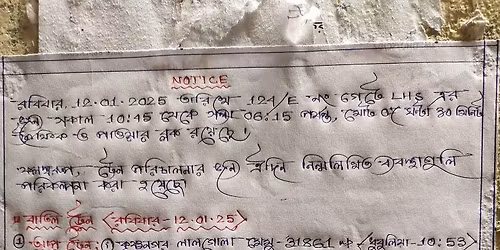 NOTICE
রবিবার, 12.01.2025 তারিখে 124/E নং গেটে LHS এর
জন্য সকাল 10:45 থেকে সন্ধ্যা 06:15 পর্যন্ত, মোট 07 ঘন্টা 30 মিনিট
ট্রাফিক ও পাওয়ার ব্লক রয়েছে।
ফলস্বরূপ, ট্রেন পরিচালনার জন্য ঐদিন নিম্নলিখিত ব্যবস্থাগুলি
পরিকল্পনা করা হয়েছে।
# বাতিল ট্রেন <রবিবার - 12.01.25>
① আপ ট্রেন: (i) কৃষ্ণনগর লালগোলা মেমু - 31861 UP <ধুবুলিয়া - 10:55>